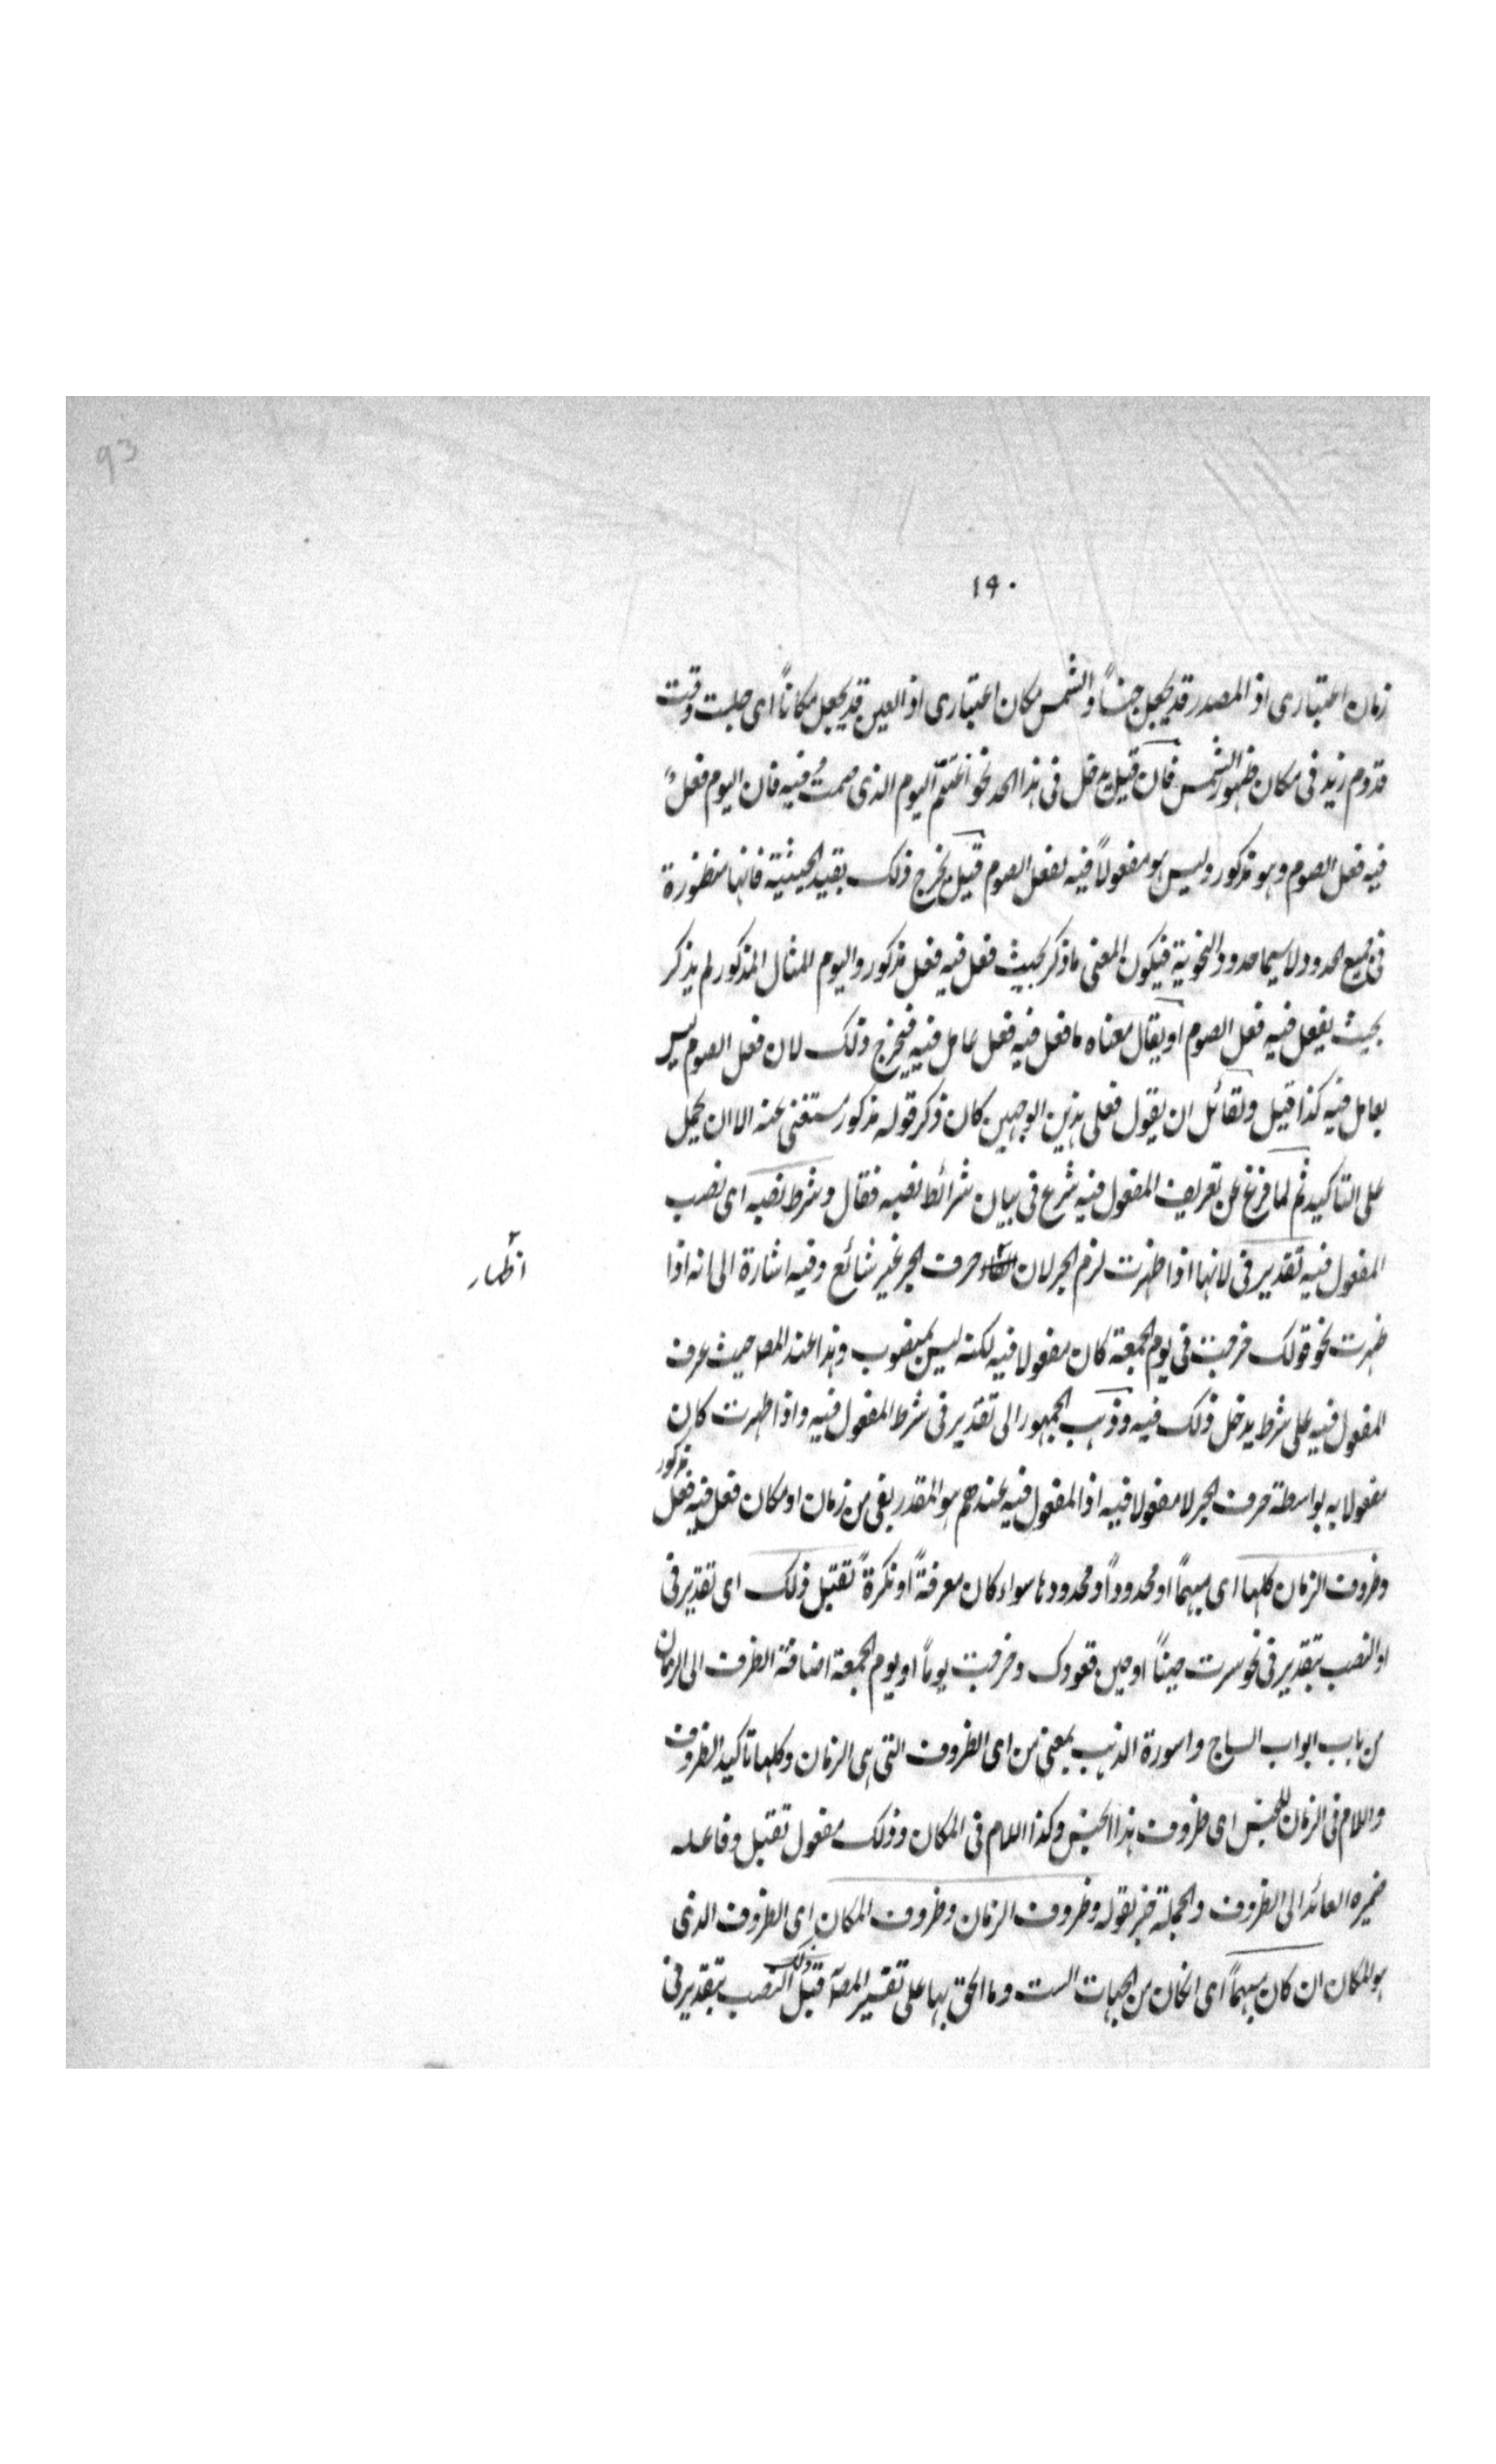 93
۱۹۰
زمان اعتباری اذ المصدر قد یجعل حینًا والشمس مکان اعتباری اذ العین قد یجعل مکانًا ای جلست وقت
قدوم زید فی مکان ظهور الشمس فان قیل یدخل فی هذا الحد نحو اغتنم الیوم الذی صمت فیه فان الیوم فعل
فیه فعل الصوم وهو مذکور ولیس هو مفعولاً فیه لفعل الصوم قیل یخرج ذلک بقید الحیثیة فانها منظورة
فی جمیع الحدود لا سیما حدود النحویة فیکون المعنی ما ذکر بحیث فعل فیه فعل مذکور والیوم للمثال المذکور لم یذکر
بحیث یفعل فیه فعل الصوم او یقال معناه ما فعل فیه فعل عامل فیه فیخرج ذلک لان فعل الصوم لیس
بعامل فیه کذا قیل ولقائل ان یقول فعلی هذین الوجهین کان ذکر قوله مذکور مستغنی عنه الا ان یحمل
علی التاکید ثم لما فرغ عن تعریف المفعول فیه شرع فی بیان شرائط نصبه فقال وشرط نصبه ای نصب
المفعول فیه تقدیر فی لانها اذا ظهرت لزم الجر لان حرف الجر غیر شائع وفیه اشارة الی انه اذا
اظهار
ظهرت نحو قولک خرجت فی یوم الجمعة کان مفعولا فیه لکنه لیس بمنصوب وهذا عند المصـ حیث عرف
المفعول فیه علی شرط یدخل ذلک فیه وذهب الجمهور الی تقدیر فی شرط المفعول فیه واذا ظهرت کان
مفعولا به بواسطة حرف الجر لا مفعولا فیه اذ المفعول فیه عندهم هو المقدر بفی من زمان او مکان فعل فیه فعل مذکور
وظروف الزمان کلها ای مبهمًا او محدودًا ومحدودها سواء کان معرفةً او نکرةً تقبل ذلک ای تقدیر فی
او النصب بتقدیر فی نحو سرت حینًا او حین قعودک وخرجت یومًا او یوم الجمعة اضافة الظرف الی الزمان
من باب ابواب الساج واسورة الذهب بمعنی من ای الظروف التی هی الزمان وکلها تاکید الظروف
واللام فی الزمان للجنس ای ظروف هذا الجنس وکذا اللام فی المکان وذلک مفعول تقبل وفاعله
ضمیره العائد الی الظروف والجملة خبر لقوله وظروف الزمان وظروف المکان ای الظروف الذی
هو المکان ان کان مبهمًا ای الکان من الجهات الست وما الحق بها علی تفسیر المصـ قبل ذلک النصب بتقدیر فی